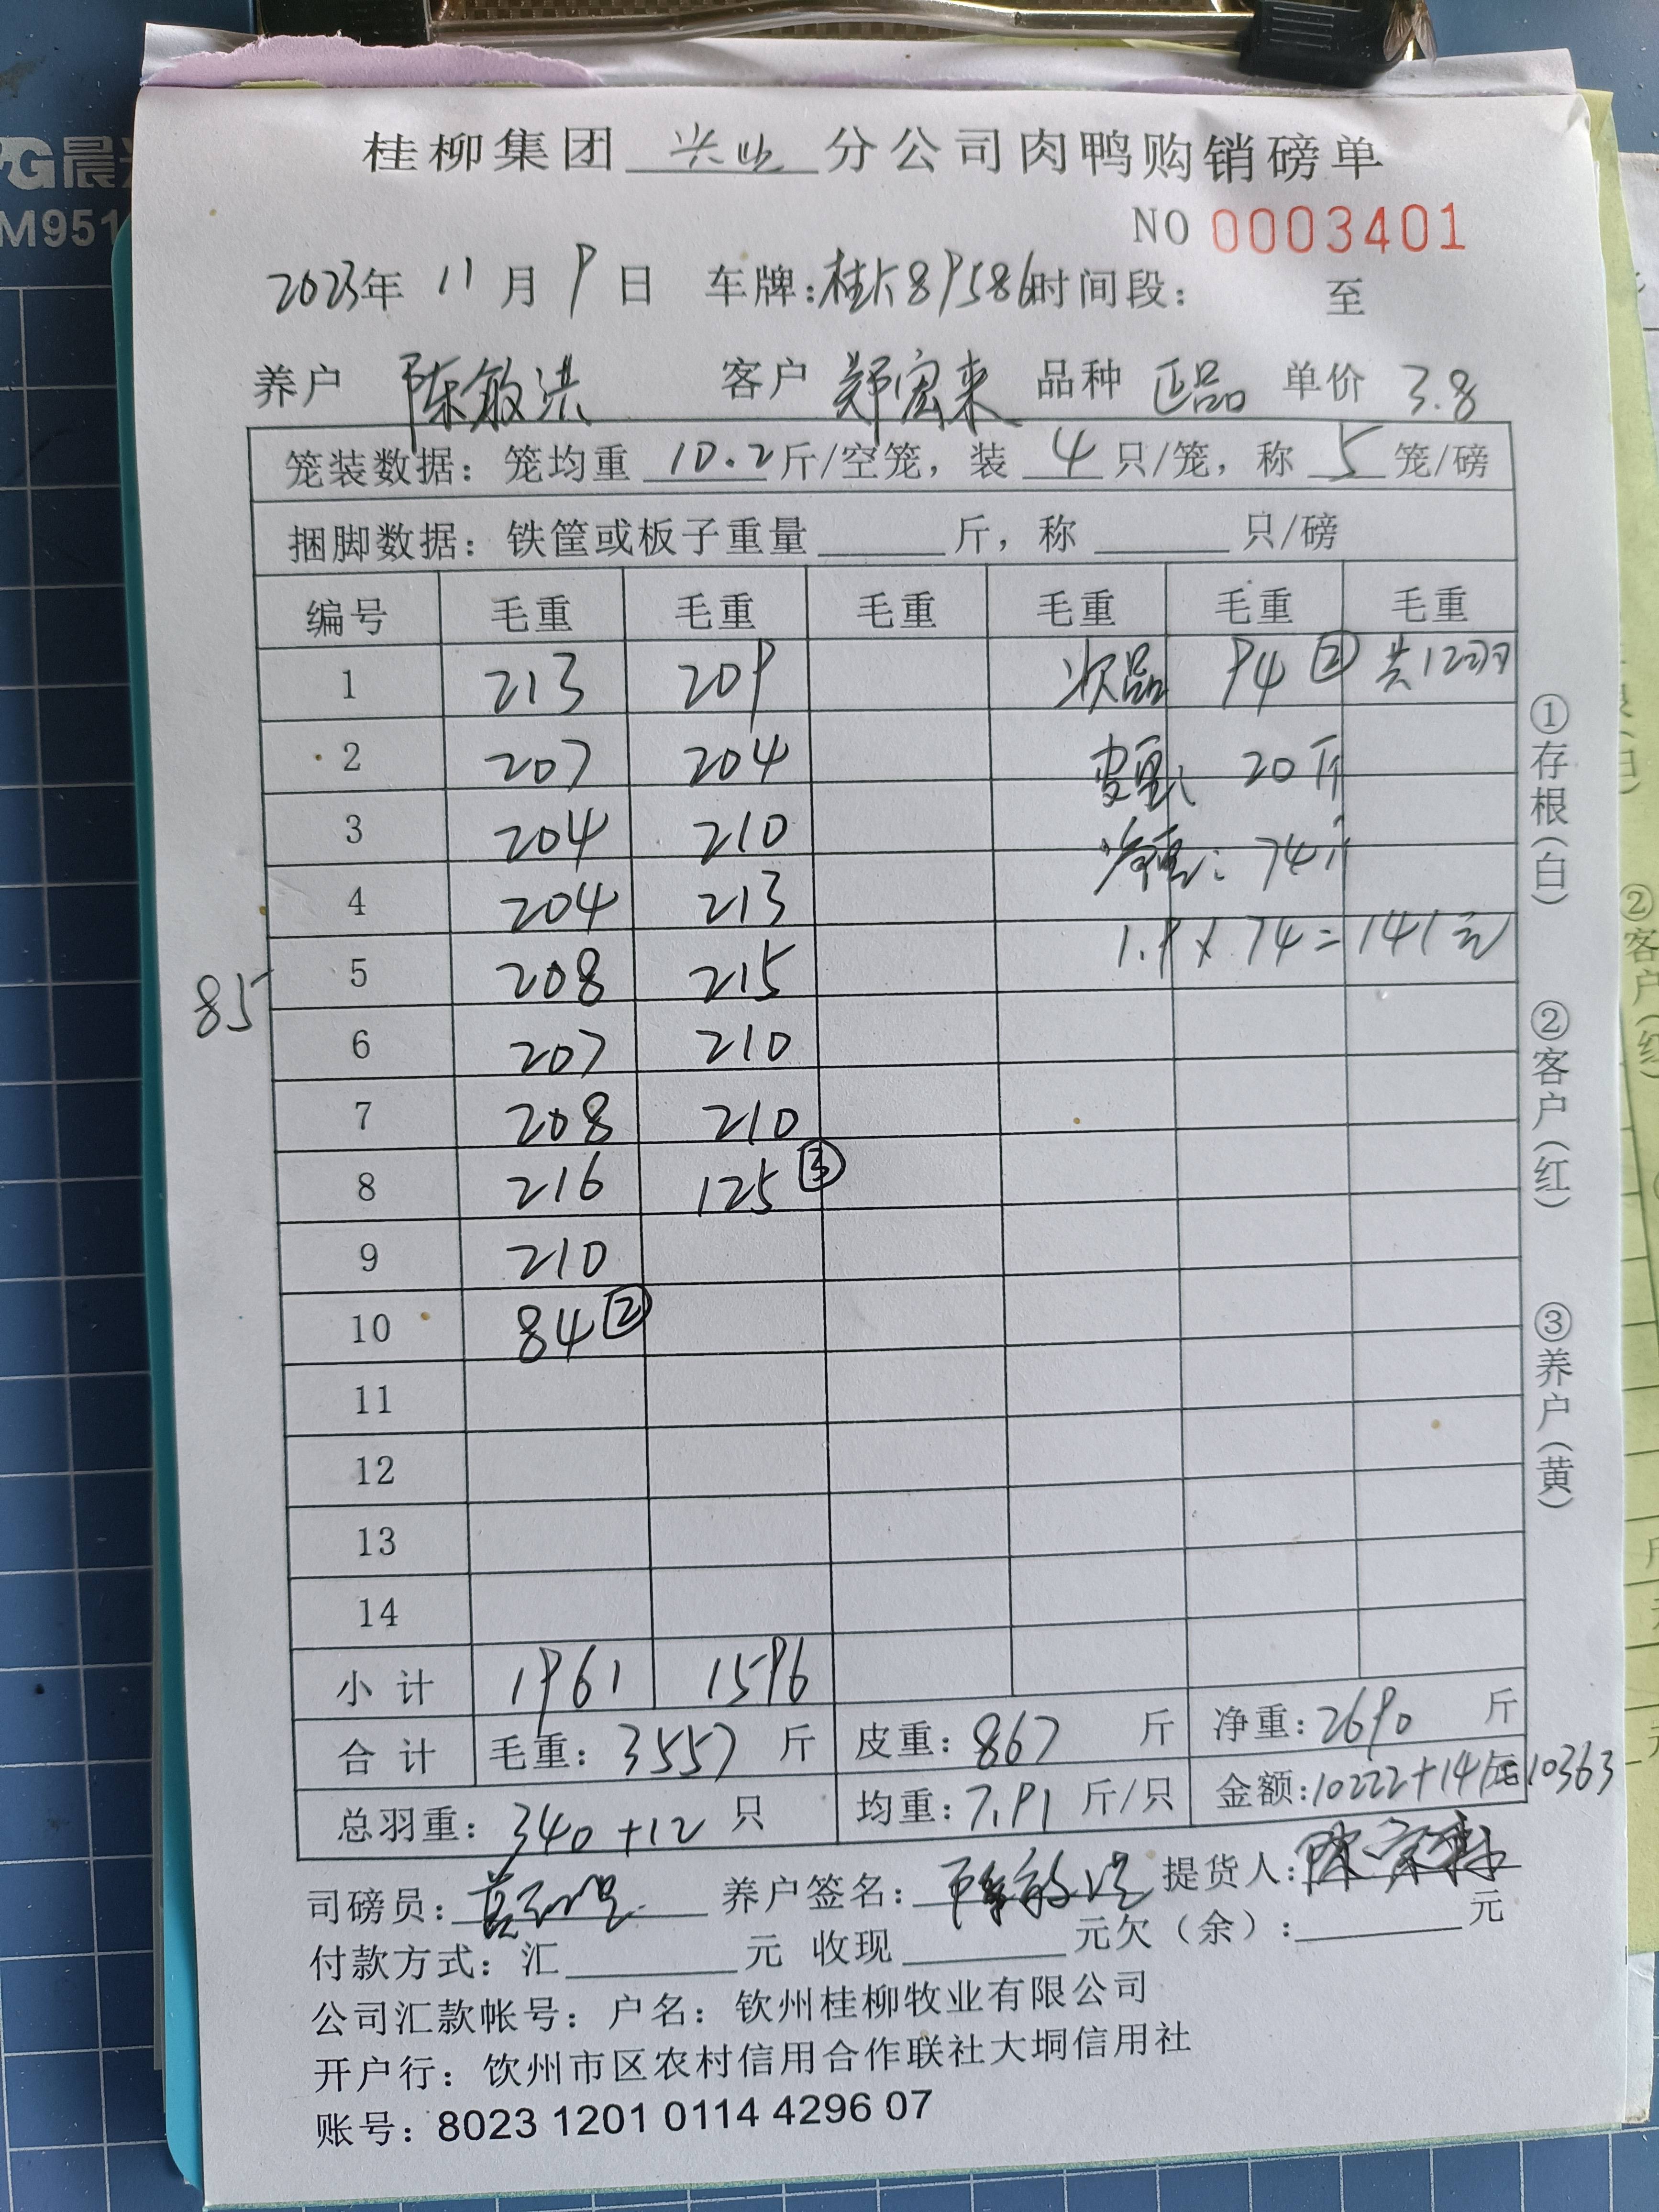 桂柳集团 兴业 分公司肉鸭购销磅单
NO 0003401
2023年 11 月 9 日 车牌:桂K89586时间段: 至
养户 陈敏洪 客户 郑宏来 品种 正品 单价 3.8
笼装数据: 笼均重 10.2 斤/空笼, 装 4 只/笼, 称 5 笼/磅
捆脚数据: 铁筐或板子重量 斤, 称 只/磅
编号 毛重 毛重 毛重 毛重 毛重 毛重
1 213 209 次品 94 ② 共12羽
2 207 204 皮重: 20斤
3 204 210 净重: 74斤
4 204 213 1.9×74=141元
85
5 208 215
6 207 210
7 208 210
8 216 125 ③
9 210
10 84 ②
11
12
13
14
小计 1961 1596
合计 毛重: 3557 斤 皮重: 867 斤 净重: 2690 斤
总羽重: 340+12 只 均重: 7.91 斤/只 金额: 10222+141元=10363
司磅员: 养户签名: 陈敏洪 提货人:
付款方式: 汇 元 收现 元欠(余): 元
公司汇款帐号: 户名: 钦州桂柳牧业有限公司
开户行: 饮州市区农村信用合作联社大垌信用社
账号: 8023 1201 0114 4296 07
①存根(白)
②客户(红)
③养户(黄)
晨
M951
②客户(红)